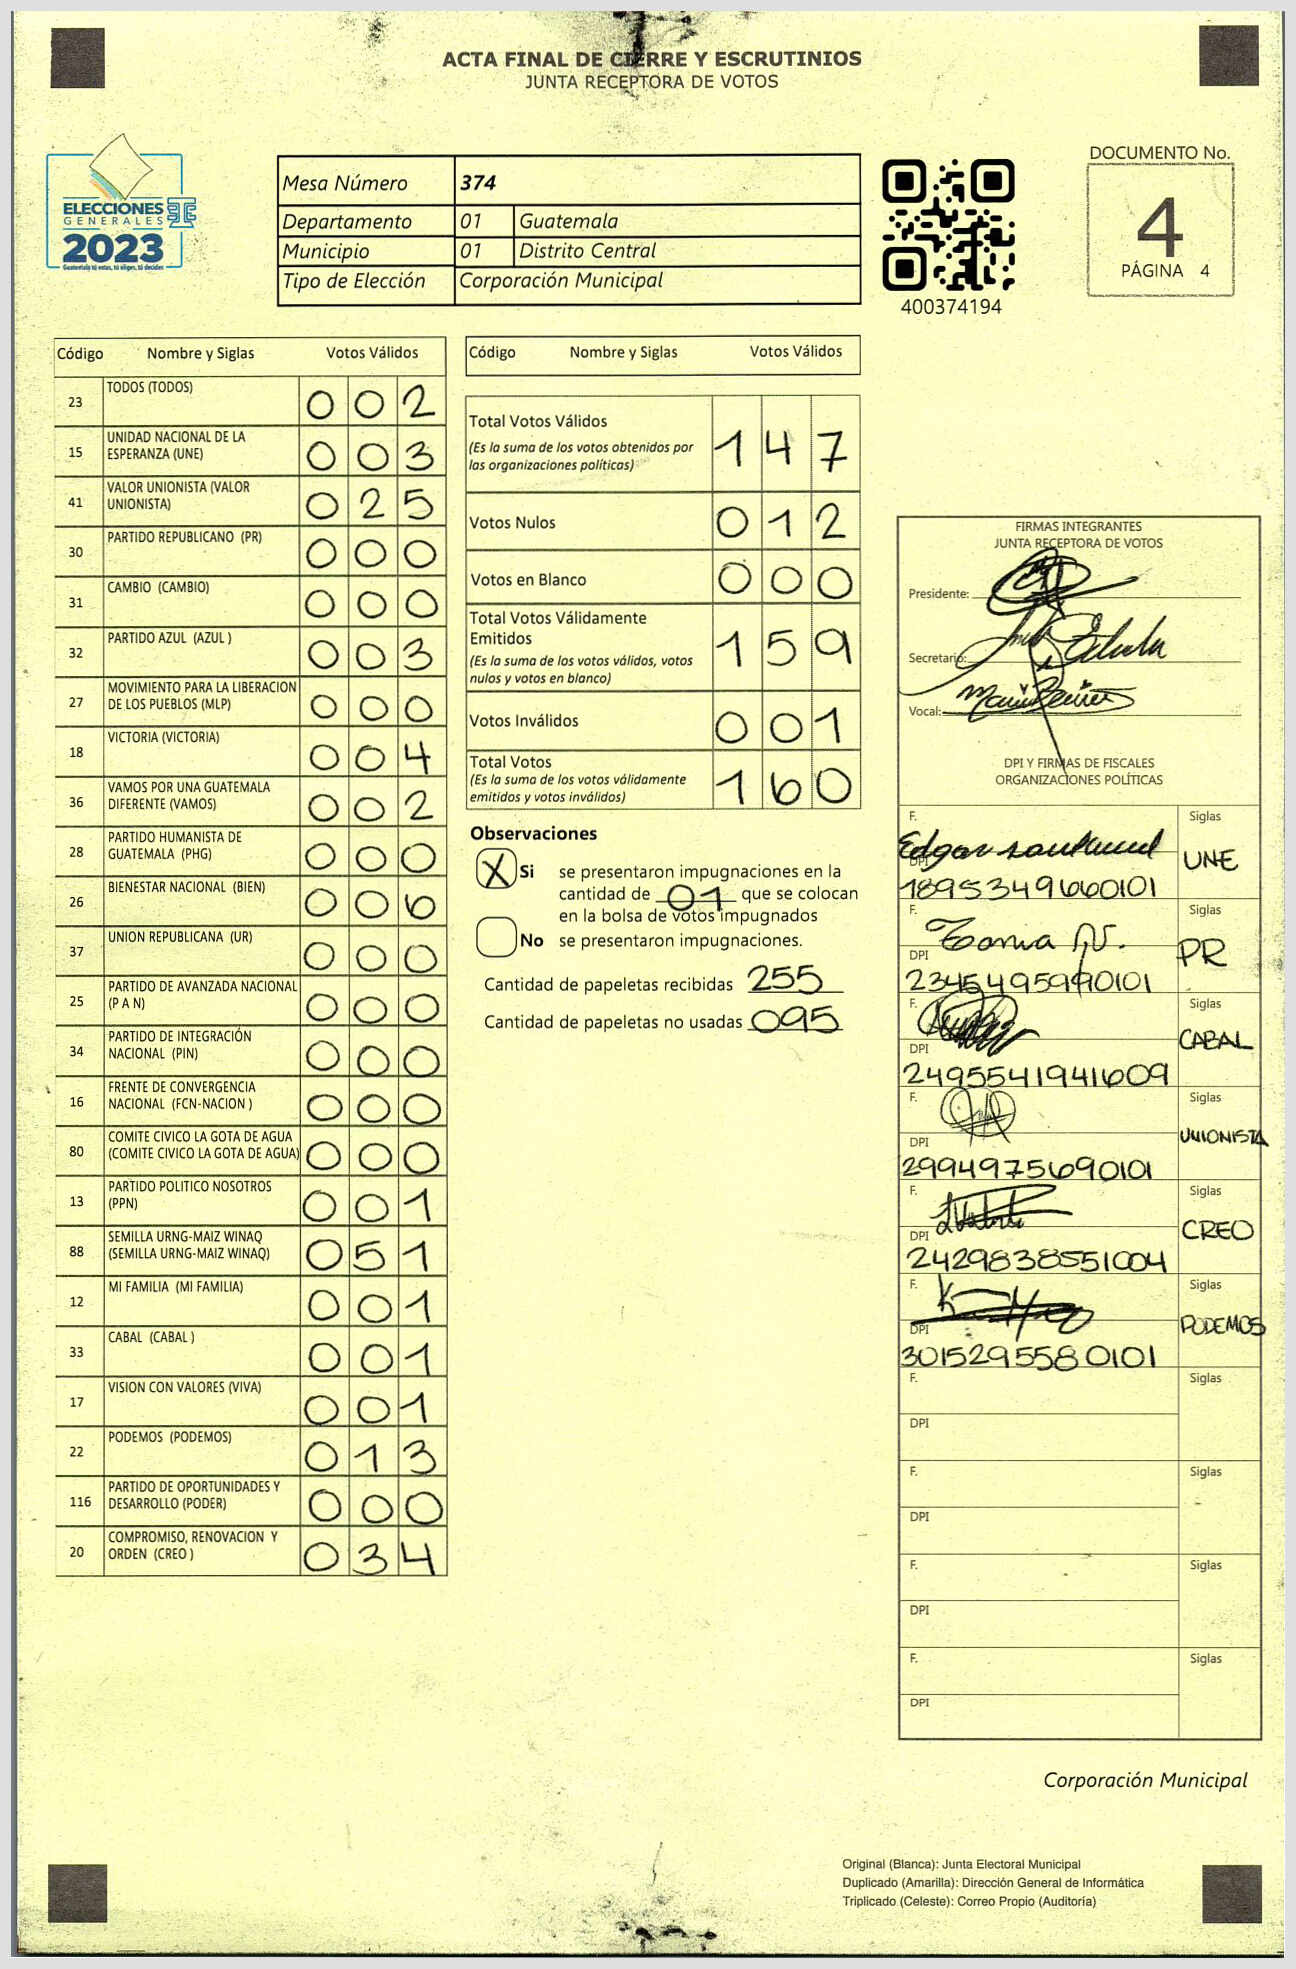 ACTA FINAL DE CIERRE Y ESCRUTINIOS
JUNTA RECEPTORA DE VOTOS
ELECCIONES
GENERALES
2023
Guatemala tú estas, tú eliges, tú decides
Mesa Número 374
Departamento 01 Guatemala
Municipio 01 Distrito Central
Tipo de Elección Corporación Municipal
400374194
DOCUMENTO No.
4
PÁGINA 4
Código Nombre y Siglas Votos Válidos
23 TODOS (TODOS) 0 0 2
15 UNIDAD NACIONAL DE LA ESPERANZA (UNE) 0 0 3
41 VALOR UNIONISTA (VALOR UNIONISTA) 0 2 5
30 PARTIDO REPUBLICANO (PR) 0 0 0
31 CAMBIO (CAMBIO) 0 0 0
32 PARTIDO AZUL (AZUL ) 0 0 3
27 MOVIMIENTO PARA LA LIBERACION DE LOS PUEBLOS (MLP) 0 0 0
18 VICTORIA (VICTORIA) 0 0 4
36 VAMOS POR UNA GUATEMALA DIFERENTE (VAMOS) 0 0 2
28 PARTIDO HUMANISTA DE GUATEMALA (PHG) 0 0 0
26 BIENESTAR NACIONAL (BIEN) 0 0 6
37 UNION REPUBLICANA (UR) 0 0 0
25 PARTIDO DE AVANZADA NACIONAL (P A N) 0 0 0
34 PARTIDO DE INTEGRACIÓN NACIONAL (PIN) 0 0 0
16 FRENTE DE CONVERGENCIA NACIONAL (FCN-NACION ) 0 0 0
80 COMITE CIVICO LA GOTA DE AGUA (COMITE CIVICO LA GOTA DE AGUA) 0 0 0
13 PARTIDO POLITICO NOSOTROS (PPN) 0 0 1
88 SEMILLA URNG-MAIZ WINAQ (SEMILLA URNG-MAIZ WINAQ) 0 5 1
12 MI FAMILIA (MI FAMILIA) 0 0 1
33 CABAL (CABAL ) 0 0 1
17 VISION CON VALORES (VIVA) 0 0 1
22 PODEMOS (PODEMOS) 0 1 3
116 PARTIDO DE OPORTUNIDADES Y DESARROLLO (PODER) 0 0 0
20 COMPROMISO, RENOVACION Y ORDEN (CREO ) 0 3 4
Código Nombre y Siglas Votos Válidos
Total Votos Válidos 1 4 7
(Es la suma de los votos obtenidos por
las organizaciones políticas)
Votos Nulos 0 1 2
Votos en Blanco 0 0 0
Total Votos Válidamente
Emitidos 1 5 9
(Es la suma de los votos válidos, votos
nulos y votos en blanco)
Votos Inválidos 0 0 1
Total Votos 1 6 0
(Es la suma de los votos válidamente
emitidos y votos inválidos)
Observaciones
X Si se presentaron impugnaciones en la
cantidad de 01 que se colocan
en la bolsa de votos impugnados
No se presentaron impugnaciones.
Cantidad de papeletas recibidas 255
Cantidad de papeletas no usadas 095
FIRMAS INTEGRANTES
JUNTA RECEPTORA DE VOTOS
Presidente:
Secretario:
Vocal:
DPI Y FIRMAS DE FISCALES
ORGANIZACIONES POLÍTICAS
F. Edgar Siglas UNE
DPI 1895349660101
F. Siglas PR
DPI 2345495990101
F. Siglas CABAL
DPI 2495541941609
F. Siglas UNIONISTA
DPI 2994975690101
F. Siglas CREO
DPI 2429838551004
F. Siglas PODEMOS
DPI 3015295580101
F. Siglas
DPI
F. Siglas
DPI
F. Siglas
DPI
F. Siglas
DPI
Corporación Municipal
Original (Blanca): Junta Electoral Municipal
Duplicado (Amarilla): Dirección General de Informática
Triplicado (Celeste): Correo Propio (Auditoría)